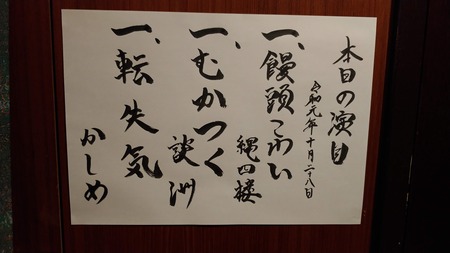 本日の演目
令和元年十月二十八日
一、饅頭こわい
縄四楼
一、むかつく
談洲
一、転失気
かしめ